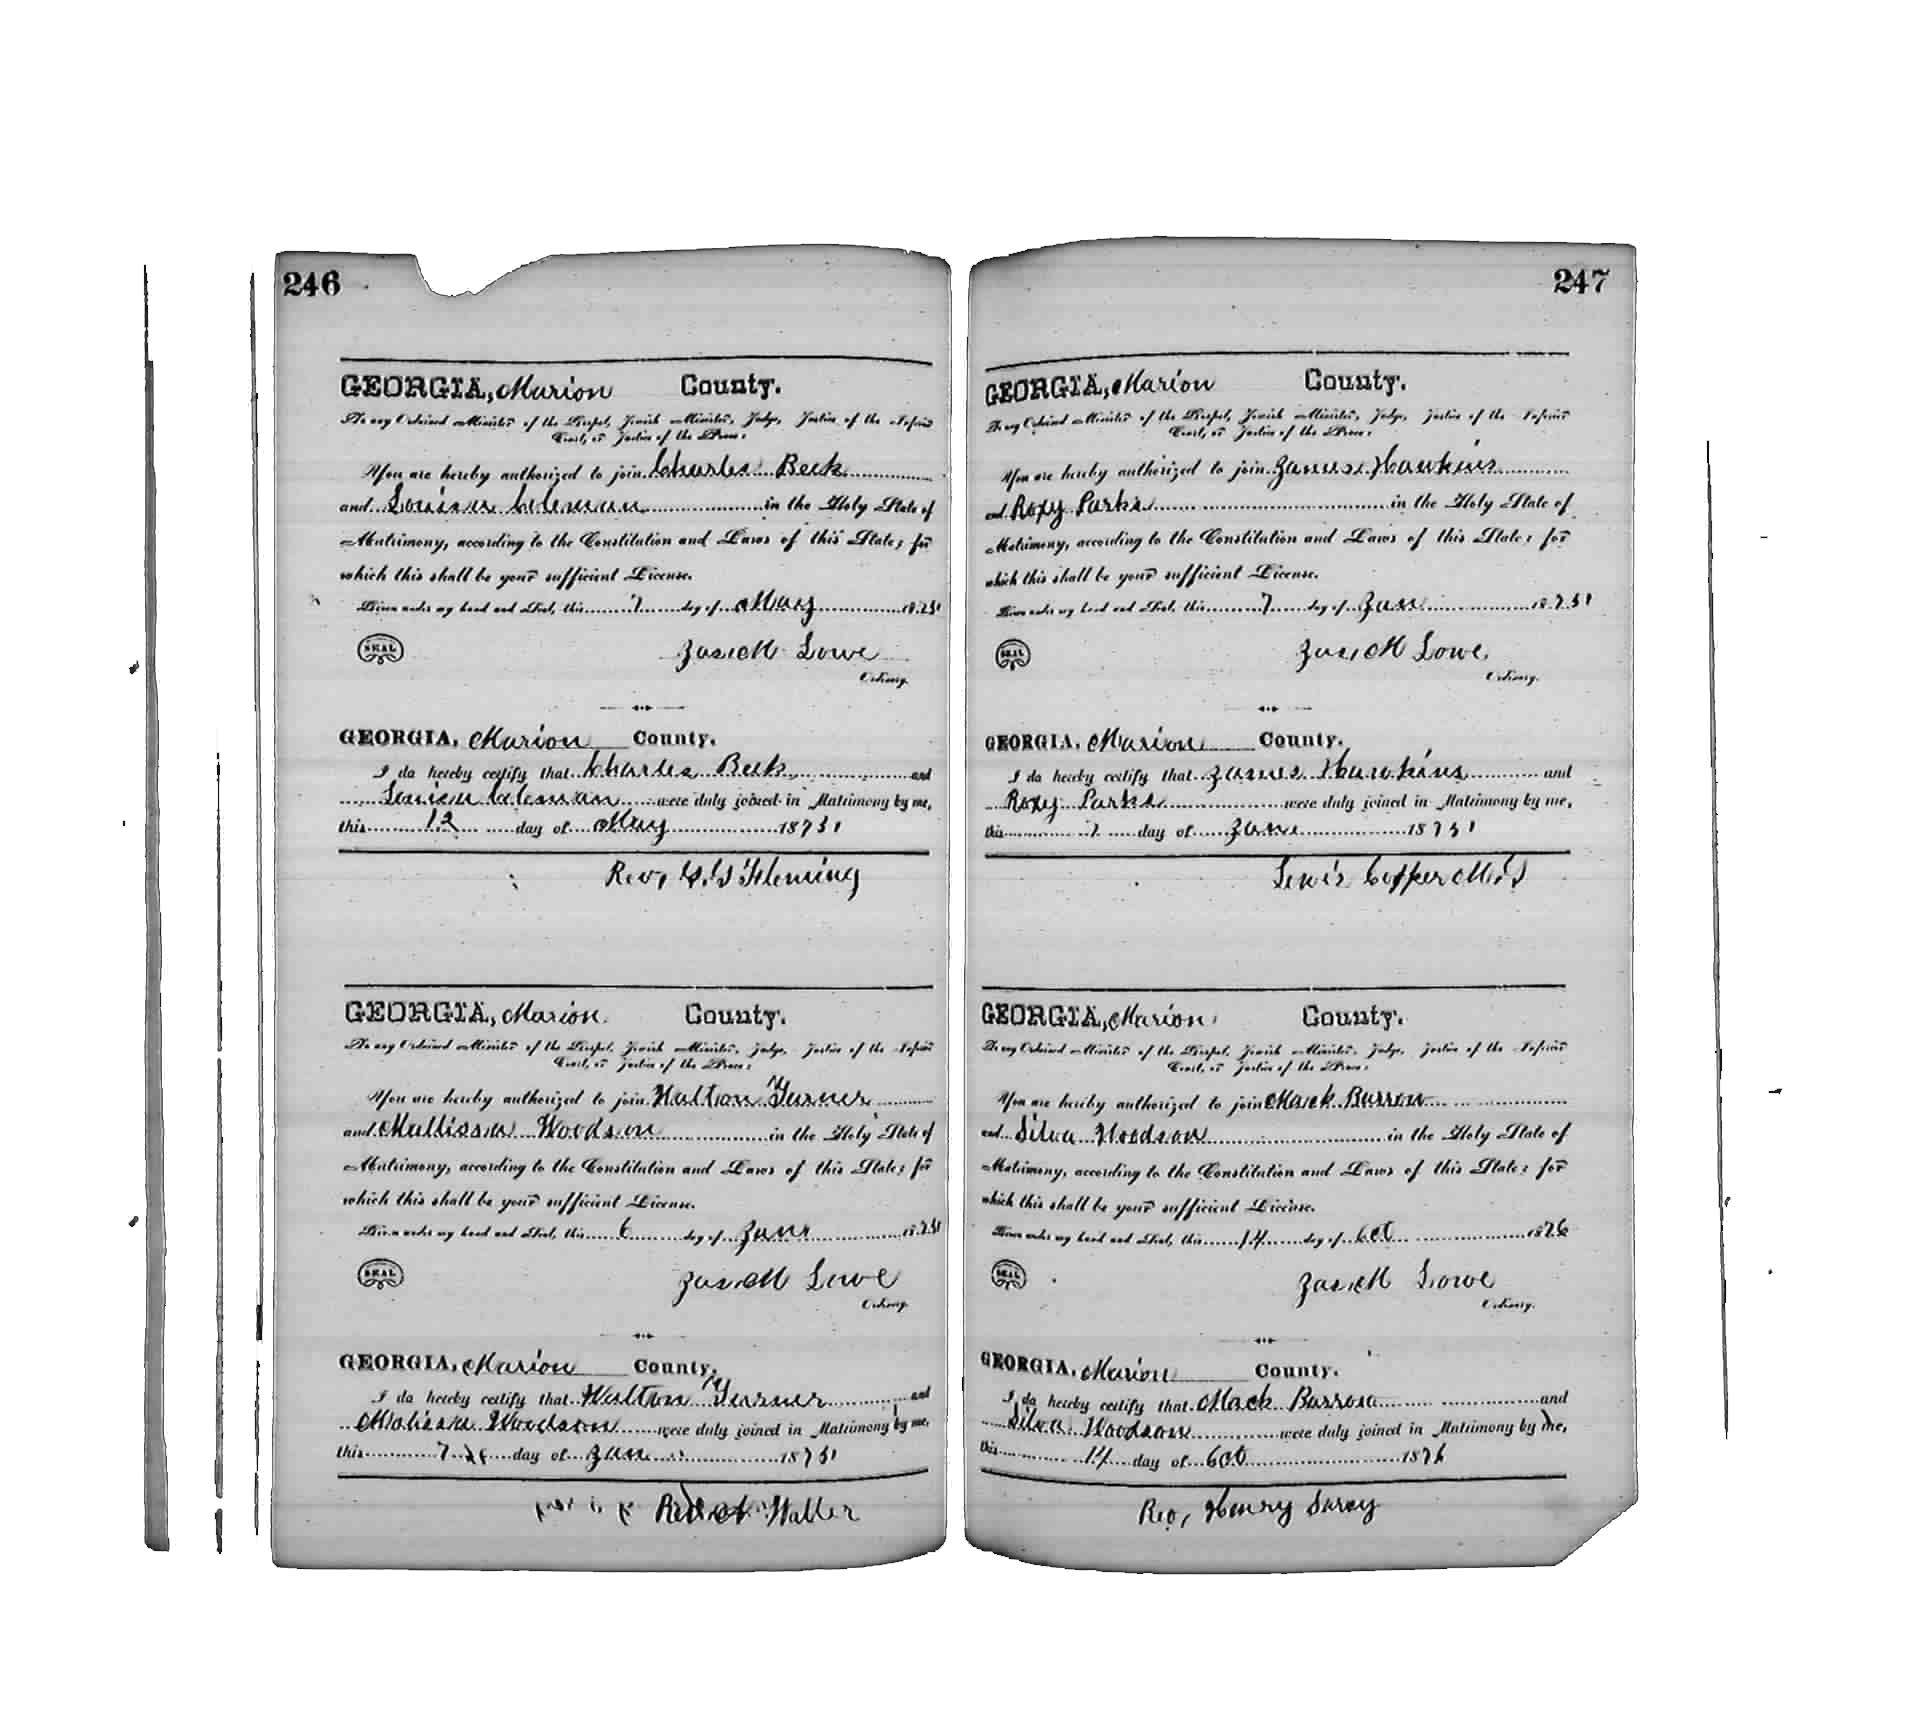 246
GEORGIA, Marion County.
To any Ordained Minister of the Gospel, Jewish Minister, Judge, Justice of the Inferior
Court, or Justice of the Peace:
You are hereby authorized to join Charles Beck
and Louisa Coleman in the Holy State of
Matrimony, according to the Constitution and Laws of this State; for
which this shall be your sufficient License.
Given under my hand and Seal, this 7 day of May 1875
SEAL
Jas. M Lowe
Ordinary.
GEORGIA, Marion County.
I do hereby certify that Charles Beck and
Louisa Coleman were duly joined in Matrimony by me,
this 12 day of May 1875
Rev, Fleming
GEORGIA, Marion County.
To any Ordained Minister of the Gospel, Jewish Minister, Judge, Justice of the Inferior
Court, or Justice of the Peace:
You are hereby authorized to join Walton Turner
and Mallissa Woodson in the Holy State of
Matrimony, according to the Constitution and Laws of this State; for
which this shall be your sufficient License.
Given under my hand and Seal, this 6 day of 1875
SEAL
Jas. M Lowe
Ordinary.
GEORGIA, Marion County.
I do hereby certify that Walton Turner and
Malissa Woodson were duly joined in Matrimony by me,
this 7 day of Jan 1875
Waller
247
GEORGIA, Marion County.
To any Ordained Minister of the Gospel, Jewish Minister, Judge, Justice of the Inferior
Court, or Justice of the Peace:
You are hereby authorized to join James Hawkins
and Roxy Parks in the Holy State of
Matrimony, according to the Constitution and Laws of this State; for
which this shall be your sufficient License.
Given under my hand and Seal, this 7 day of Jan 1875
SEAL
Jas. M Lowe
Ordinary.
GEORGIA, Marion County.
I do hereby certify that James Hawkins and
Roxy Parks were duly joined in Matrimony by me,
this 7 day of Jan 1875
Lewis
GEORGIA, Marion County.
To any Ordained Minister of the Gospel, Jewish Minister, Judge, Justice of the Inferior
Court, or Justice of the Peace:
You are hereby authorized to join Mack Burrow
and Silva Woodson in the Holy State of
Matrimony, according to the Constitution and Laws of this State; for
which this shall be your sufficient License.
Given under my hand and Seal, this 14 day of Oct 1876
SEAL
Jas. M Lowe
Ordinary.
GEORGIA, Marion County.
I do hereby certify that Mack Burrow and
Silva Woodson were duly joined in Matrimony by me,
this 14 day of Oct 1876
Rev, Henry